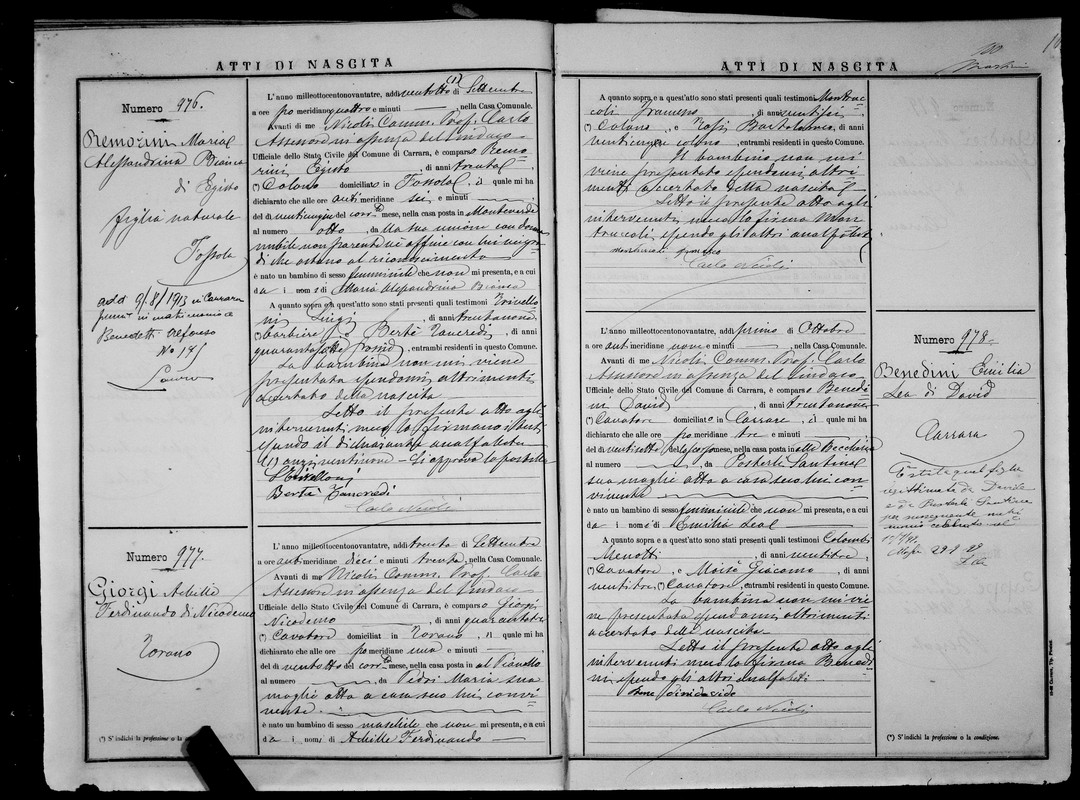 ATTI DI NASCITA
Numero 976.
Remorini Maria
Alessandrina Bianca
di Egisto
figlia naturale
Fossola
add 9/8/1913 in Carrara
in matrimonio a
Benedetti Alfonso
No 145
L'anno milleottocentonovantatre, addì ventotto (1) di Settembre
a ore po meridiane quattro e minuti —, nella Casa Comunale.
Avanti di me Nicoli Comm. Prof. Carlo
Assessore in assenza del Sindaco
Ufficiale dello Stato Civile del Comune di Carrara, è comparso Remo
rini Egisto, di anni trenta
(*) Colono domiciliato in Fossola, il quale mi ha
dichiarato che alle ore anti meridiane sei e minuti —
del dì venticinque del corrte mese, nella casa posta in Monteverde
al numero otto, da la sua unione con donna
nubile non parente nè affine con lui nei gra
di che ostano al riconoscimento
è nato un bambino di sesso femminile che non mi presenta, e a cui
da i nomi di Maria Alessandrina Bianca
A quanto sopra e a quest'atto sono stati presenti quali testimoni Trivello
ni Luigi, di anni trentanove
barbiere, e Bertà Tancredi, di anni
quarantasette, entrambi residenti in questo Comune.
La bambina non mi viene
presentata essendomi altrimenti
accertato della nascita
Letto il presente atto agli
intervenuti meco lo firmano i testi
essendo il dichiarante analfabeta
(1) anzi ventinove — Si approva la postilla
Bertà Tancredi
Carlo Nicoli
Numero 977.
Giorgi Achille
Ferdinando di Nicodemo
Torano
L'anno milleottocentonovantatre, addì trenta di Settembre
a ore anti meridiane dieci e minuti trenta, nella Casa Comunale.
Avanti di me Nicoli Comm. Prof. Carlo
Assessore in assenza del Sindaco
Ufficiale dello Stato Civile del Comune di Carrara, è comparso Giorgi
Nicodemo, di anni quarantatre
(*) Cavatore domiciliato in Torano, il quale mi ha
dichiarato che alle ore po meridiane una e minuti —
del dì ventotto del corrte mese, nella casa posta in al Pianello
al numero —, da Pedri Maria sua
moglie atto a can seco lui convi
vente
è nato un bambino di sesso maschile che non mi presenta, e a cui
da i nomi di Achille Ferdinando —
(*) S'indichi la professione o la
ATTI DI NASCITA
A quanto sopra e a quest'atto sono stati presenti quali testimoni Montruc
coli Francesco, di anni ventisei
(*) Colono, e Tosi Bartolomeo, di anni
venticinque colono, entrambi residenti in questo Comune.
Il bambino non mi
viene presentato essendomi altri
menti accertato della nascita
Letto il presente atto agli
intervenuti meco lo firma Mon
truccoli essendo gli altri analfabeti
montruccoli francesco
Carlo Nicoli
L'anno milleottocentonovantatre, addì primo di Ottobre
a ore anti meridiane nove e minuti —, nella Casa Comunale.
Avanti di me Nicoli Comm. Prof. Carlo
Assessore in assenza del Sindaco
Ufficiale dello Stato Civile del Comune di Carrara, è comparso Benedi
ni David, di anni trentanove
(*) Cavatore domiciliato in Carrara, il quale mi ha
dichiarato che alle ore po meridiane tre e minuti —
del dì ventisette del scorso mese, nella casa posta in alle Beccheria
al numero —, da Posterli Santina
sua moglie atto a casa seco lui con
vivente
è nato un bambino di sesso femminile che non mi presenta, e a cui
da i nomi di Emilia Lea —
A quanto sopra e a quest'atto sono stati presenti quali testimoni Colombi
Menotti, di anni ventitre
(*) Cavatore, e Moisè Giacomo, di anni
ventitre (*) Cavatore, entrambi residenti in questo Comune.
La bambina non mi vie
ne presentata essendomi altrimenti
accertato della nascita
Letto il presente atto agli
intervenuti meco lo firma Benedi
ni essendo gli altri analfabeti.
Bene dini davide
Carlo Nicoli
Numero 978
Benedini Emilia
Lea di David
Carrara
(*) S'indichi la professione o la condizione.